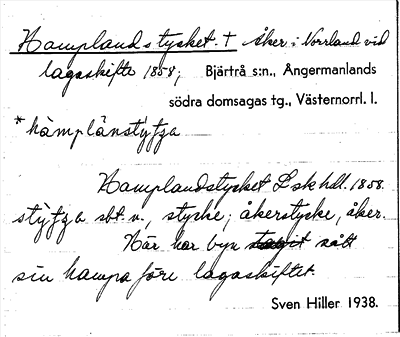 Hamplandstycket. † Åker i Norrland vid
lagaskifte 1858; Bjärtrå s:n., Ångermanlands
södra domsagas tg., Västernorrl. l.
*hàmplànstýʒʒa
Hamplandstycket Lskhdl. 1858.
stỳʒʒa sbt. n., stycke; åkerstycke, åker.
Här har byn sålt
sin hampa före lagaskiftet.
Sven Hiller 1938.